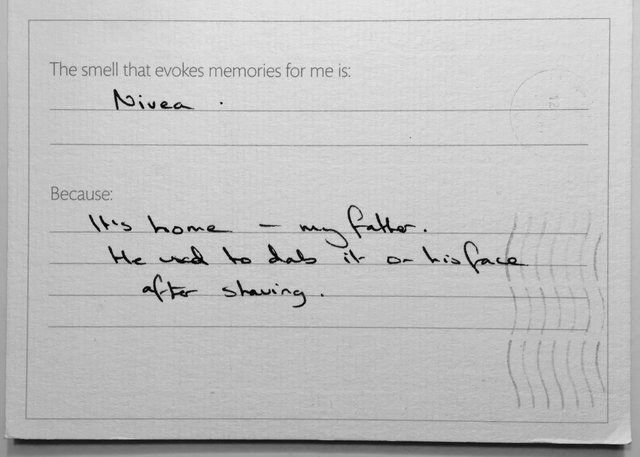 The smell that evokes memories for me is:
Nivea.
Because:
It's home – my father.
He used to dab it on his face
after shaving.